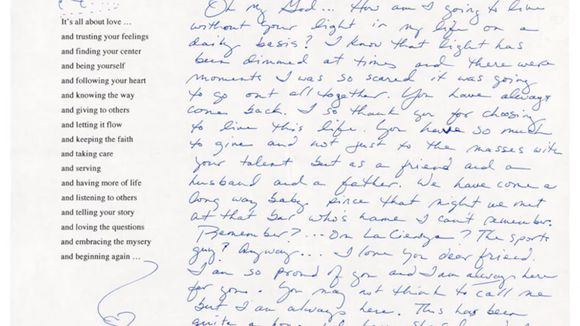 It's all about love ...
and trusting your feelings
and finding your center
and being yourself
and following your heart
and knowing the way
and giving to others
and letting it flow
and keeping the faith
and taking care
and serving
and having more of life
and listening to others
and telling your story
and loving the questions
and embracing the mysery
and beginning again ...
Oh my God... How am I going to live
without your light in my life on a
daily bassis? I know that light has
been dimmed at times and there were
moments I was so scared it was going
to go out all together. You have always
come back. I so thank you for choosing
to live this life. You have so much
to give and not just to the masses with
your talent but as a friend and a
husband and a father. We have come a
long way baby. Since that night we met
at that bar who's name I can't remember.
Remember?... On La Cienega? The sports
guy? Anyway... I love you dear friend.
I am so proud of you and I am always here
for you. You may not think to call me
but I am always here. This has been
quite a